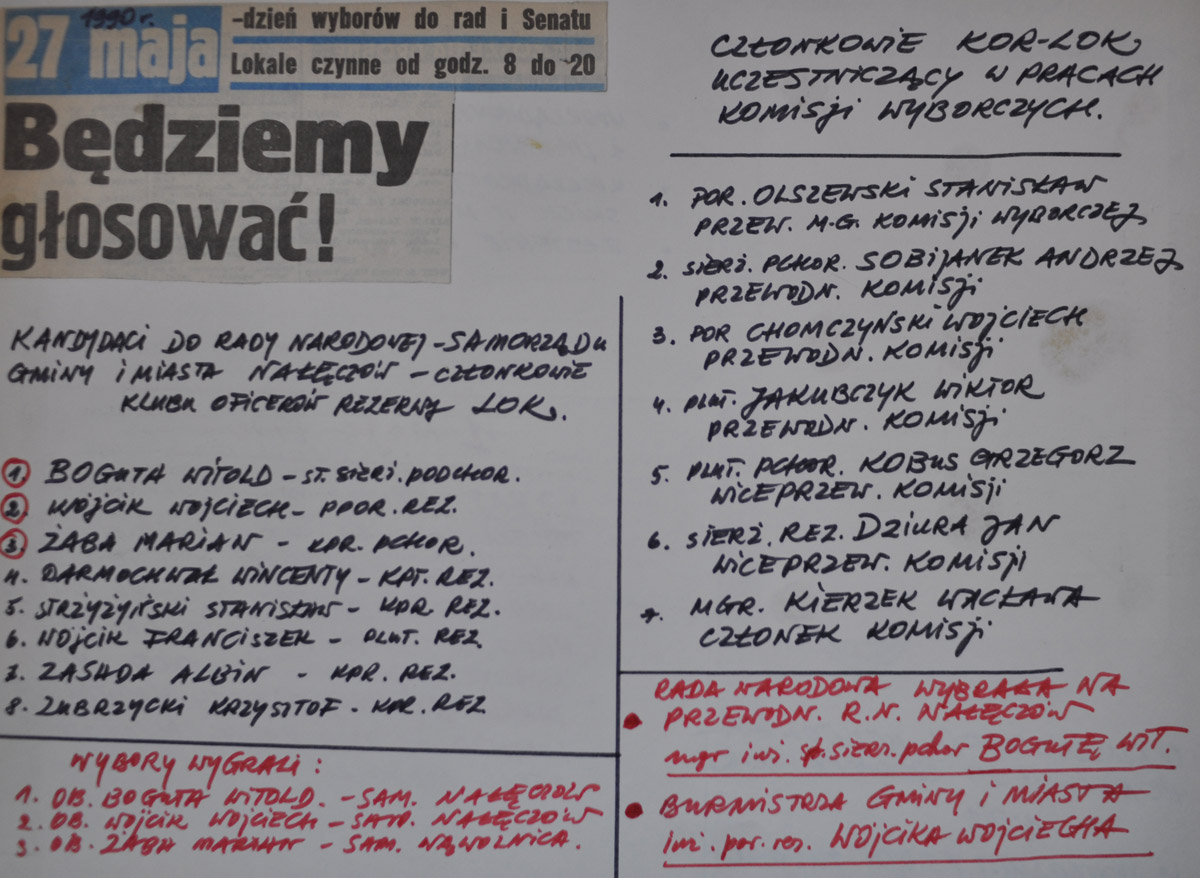 1990 r.
27 maja
-dzień wyborów do rad i Senatu
Lokale czynne od godz. 8 do 20
Będziemy
głosować!
KANDYDACI DO RADY NARODOWEJ - SAMORZĄDU
GMINY I MIASTA NAŁĘCZÓW - CZŁONKOWIE
KLUBU OFICERÓW REZERWY LOK.
1. BOGUTA WITOLD - ST. SIERŻ. PODCHOR.
2. WÓJCIK WOJCIECH - PPOR. REZ.
3. ŻABA MARIAN - KPR. PCHOR.
4. DARMOCHWAŁ WINCENTY - KPT. REZ.
5. STRZYŻYŃSKI STANISŁAW - KPR. REZ.
6. WÓJCIK FRANCISZEK - PLUT. REZ.
7. ZASUDA ALBIN - KPR. REZ.
8. ZUBRZYCKI KRZYSZTOF - KPR. REZ.
WYBORY WYGRALI:
1. OB. BOGUTA WITOLD. - SAM. NAŁĘCZÓW
2. OB. WÓJCIK WOJCIECH - SAM. NAŁĘCZÓW
3. OB. ŻABA MARIAN - SAM. WĄWOLNICA.
CZŁONKOWIE KOR-LOK,
UCZESTNICZĄCY W PRACACH
KOMISJI WYBORCZYCH.
1. POR. OLSZEWSKI STANISŁAW
PRZEW. M-G. KOMISJI WYBORCZEJ
2. SIERŻ. PCHOR. SOBIJANEK ANDRZEJ
PRZEWODN. KOMISJI
3. POR CHOMCZYŃSKI WOJCIECH
PRZEWODN. KOMISJI
4. PLUT. JAKUBCZYK WIKTOR
PRZEWODN. KOMISJI
5. PLUT. PCHOR. KOBUS GRZEGORZ
WICEPRZEW. KOMISJI
6. SIERŻ. REZ. DZIURA JAN
WICEPRZEW. KOMISJI
7. MGR. KIERZEK WACŁAWA
CZŁONEK KOMISJI
RADA NARODOWA WYBRAŁA NA
• PRZEWODN. R.N. NAŁĘCZÓW
mgr inż. sierż. pchor BOGUTĘ WIT.
• BURMISTRZA GMINY I MIASTA
inż. por. rez. WÓJCIKA WOJCIECHA